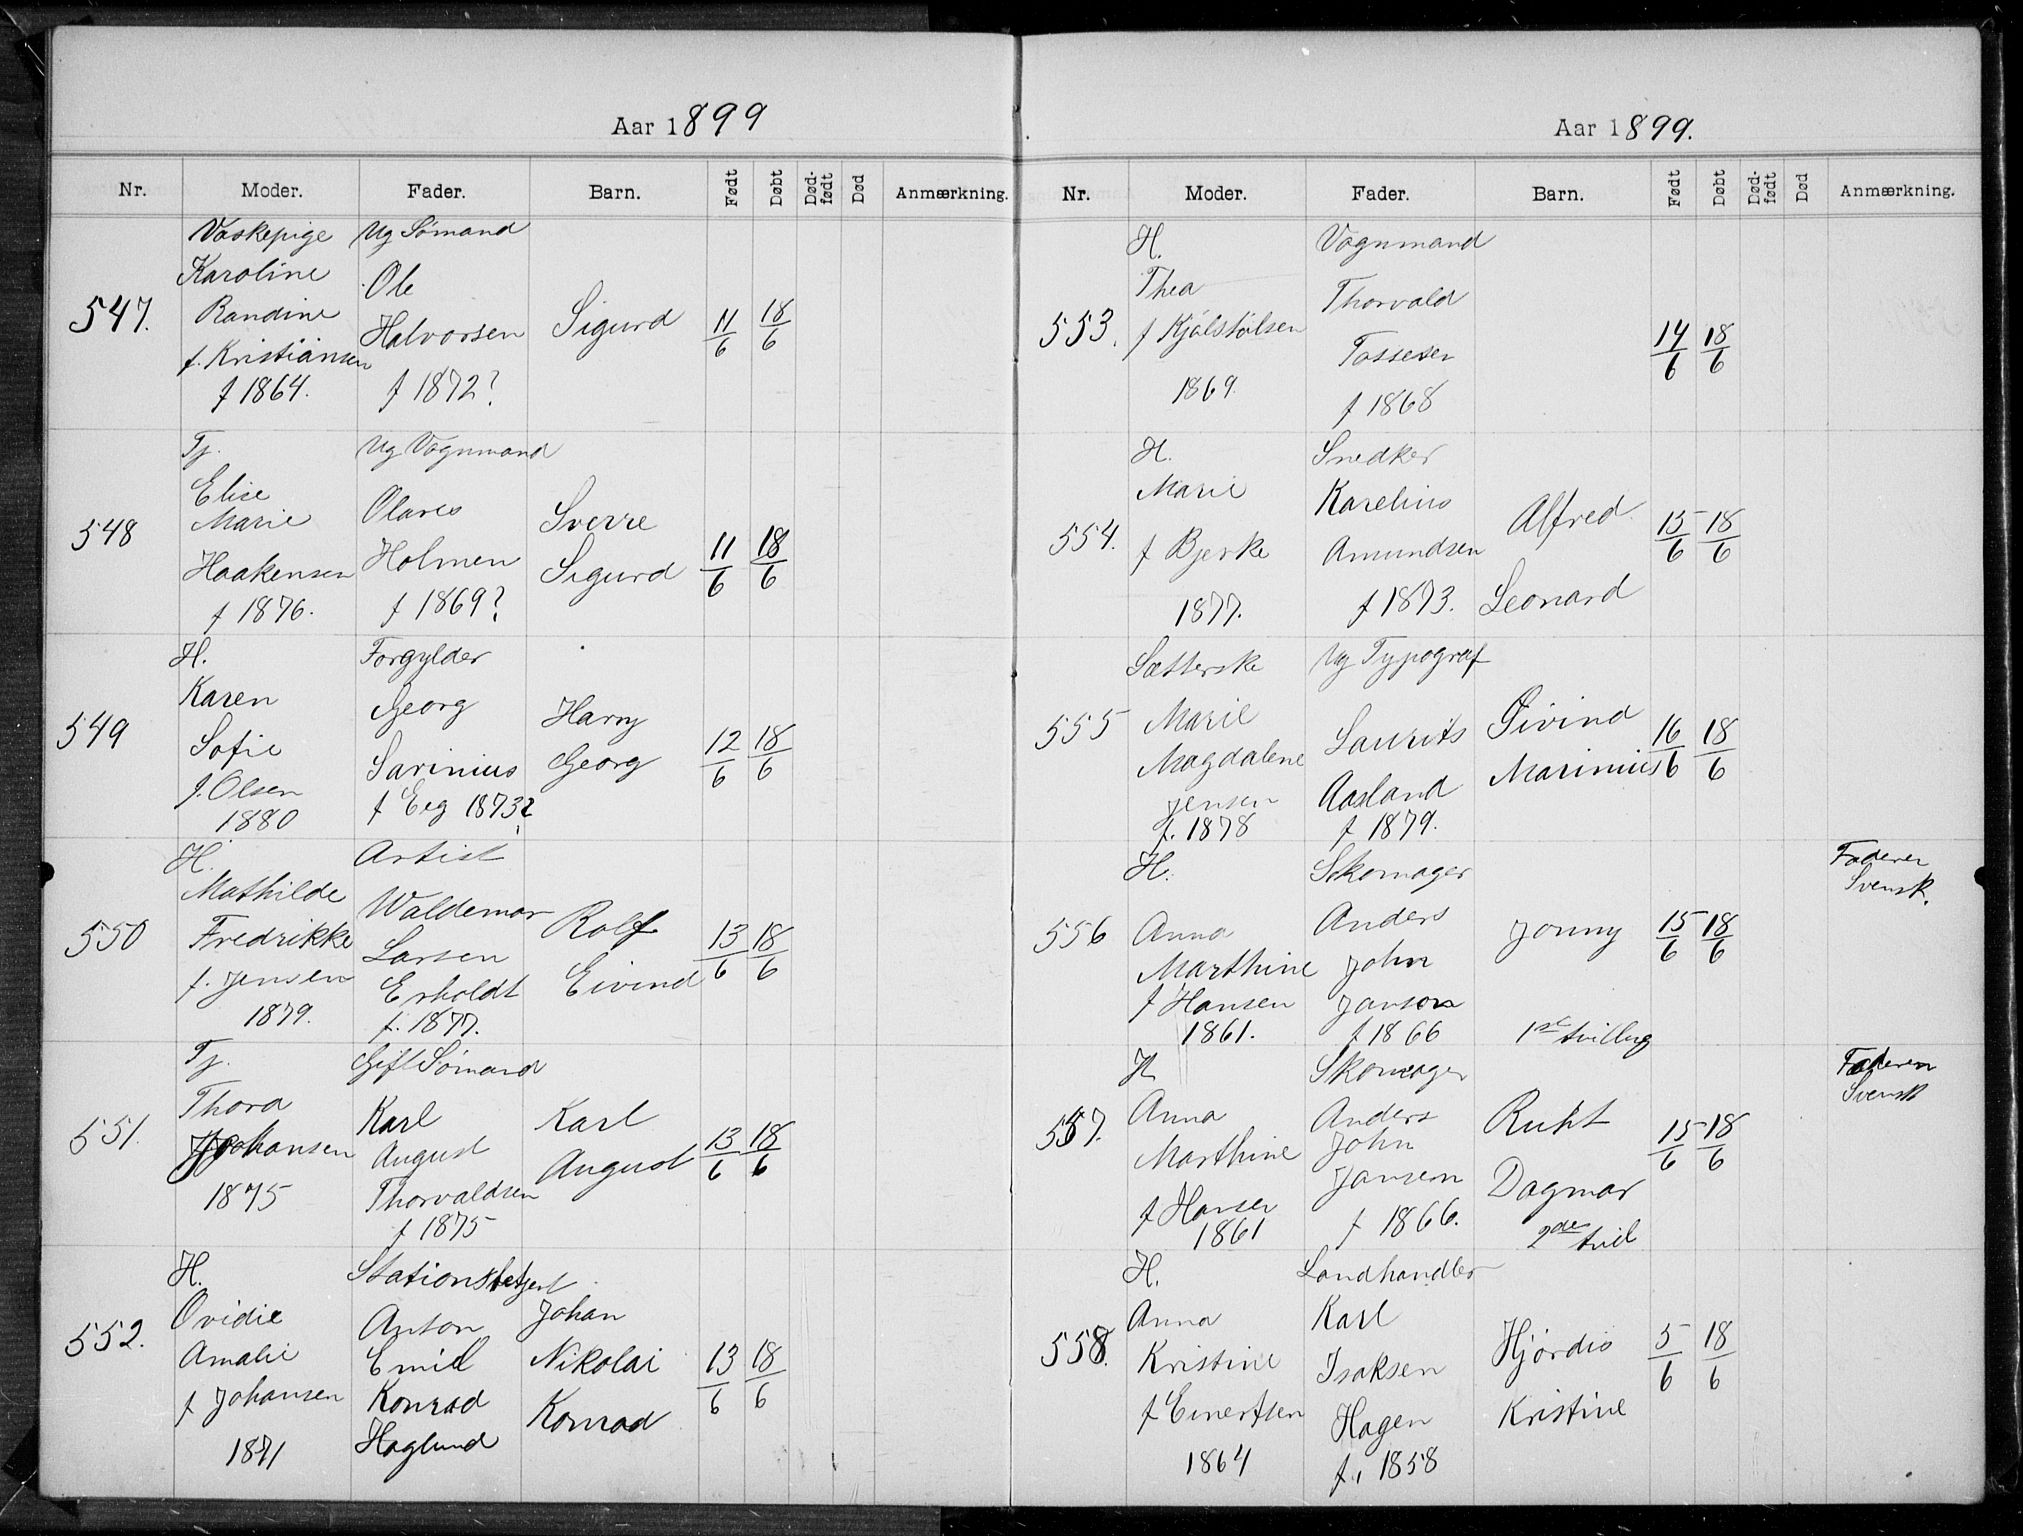 Aar 1899
Nr. Moder. Fader. Barn. Født Døbt Død-født Død Anmærkning.
547.
Vaskepige
Karoline
Randine
f. Kristiansen
f 1864.
Ug Sømand
Ole
Halvorsen
f 1872?
Sigurd
11/6 18/6
548
Tj.
Elise
Marie
Haakensen
f 1876.
Ug Vognmand
Olaves
Holmen
f 1869?
Sverre
Sigurd
11/6 18/6
549
H.
Karen
Sofie
f. Olsen
1880
Forgylder
Georg
Sarinius
f Eeg 1873?
Harry
Georg
12/6 18/6
550
H.
Mathilde
Fredrikke
f. Jensen
1879.
Artist
Waldemar
Larsen
Erholdt
f. 1877.
Rolf
Eivind
13/6 18/6
551.
Tj.
Thora
Johansen
1875
Gift Sømand
Karl
August
Thorvaldsen
f 1875
Karl
August
13/6 18/6
552.
H.
Ovidie
Amalie
f Johansen
1871
Stationsbetjent
Anton
Emil
Konrad
Haglund
Johan
Nikolai
Konrad
13/6 18/6
Aar 1899.
Nr. Moder. Fader. Barn. Født Døbt Død-født Død Anmærkning.
553.
H.
Thea
f Kjølstølsen
1869.
Vognmand
Thorvald
Tossesen
f 1868
14/6 18/6
554.
H.
Marie
f Bjerke
1877.
Snedker
Karelius
Amundsen
f 1873.
Alfred
Leonard
15/6 18/6
555
Sætterske
Marie
Magdalene
Jensen
f. 1878
Ug Typograf
Laurits
Aasland
f 1879.
Øivind
Marinius
16/6 18/6
556
H.
Anna
Marthine
f Hansen
1861.
Skomager
Anders
John
Janson
f 1866
Jonny
1ste tvilling
15/6 18/6
Faderen
Svensk.
557.
H
Anna
Marthine
f Hansen
1861
Skomager
Anders
John
Janson
f 1866.
Ruht
Dagmar
2den tvil
15/6 18/6
Faderen
Svensk
558.
H.
Anna
Kristine
f Einertsen
1864
Landhandler
Karl
Isaksen
Hagen
f. 1858
Hjørdis
Kristine
5/6 18/6